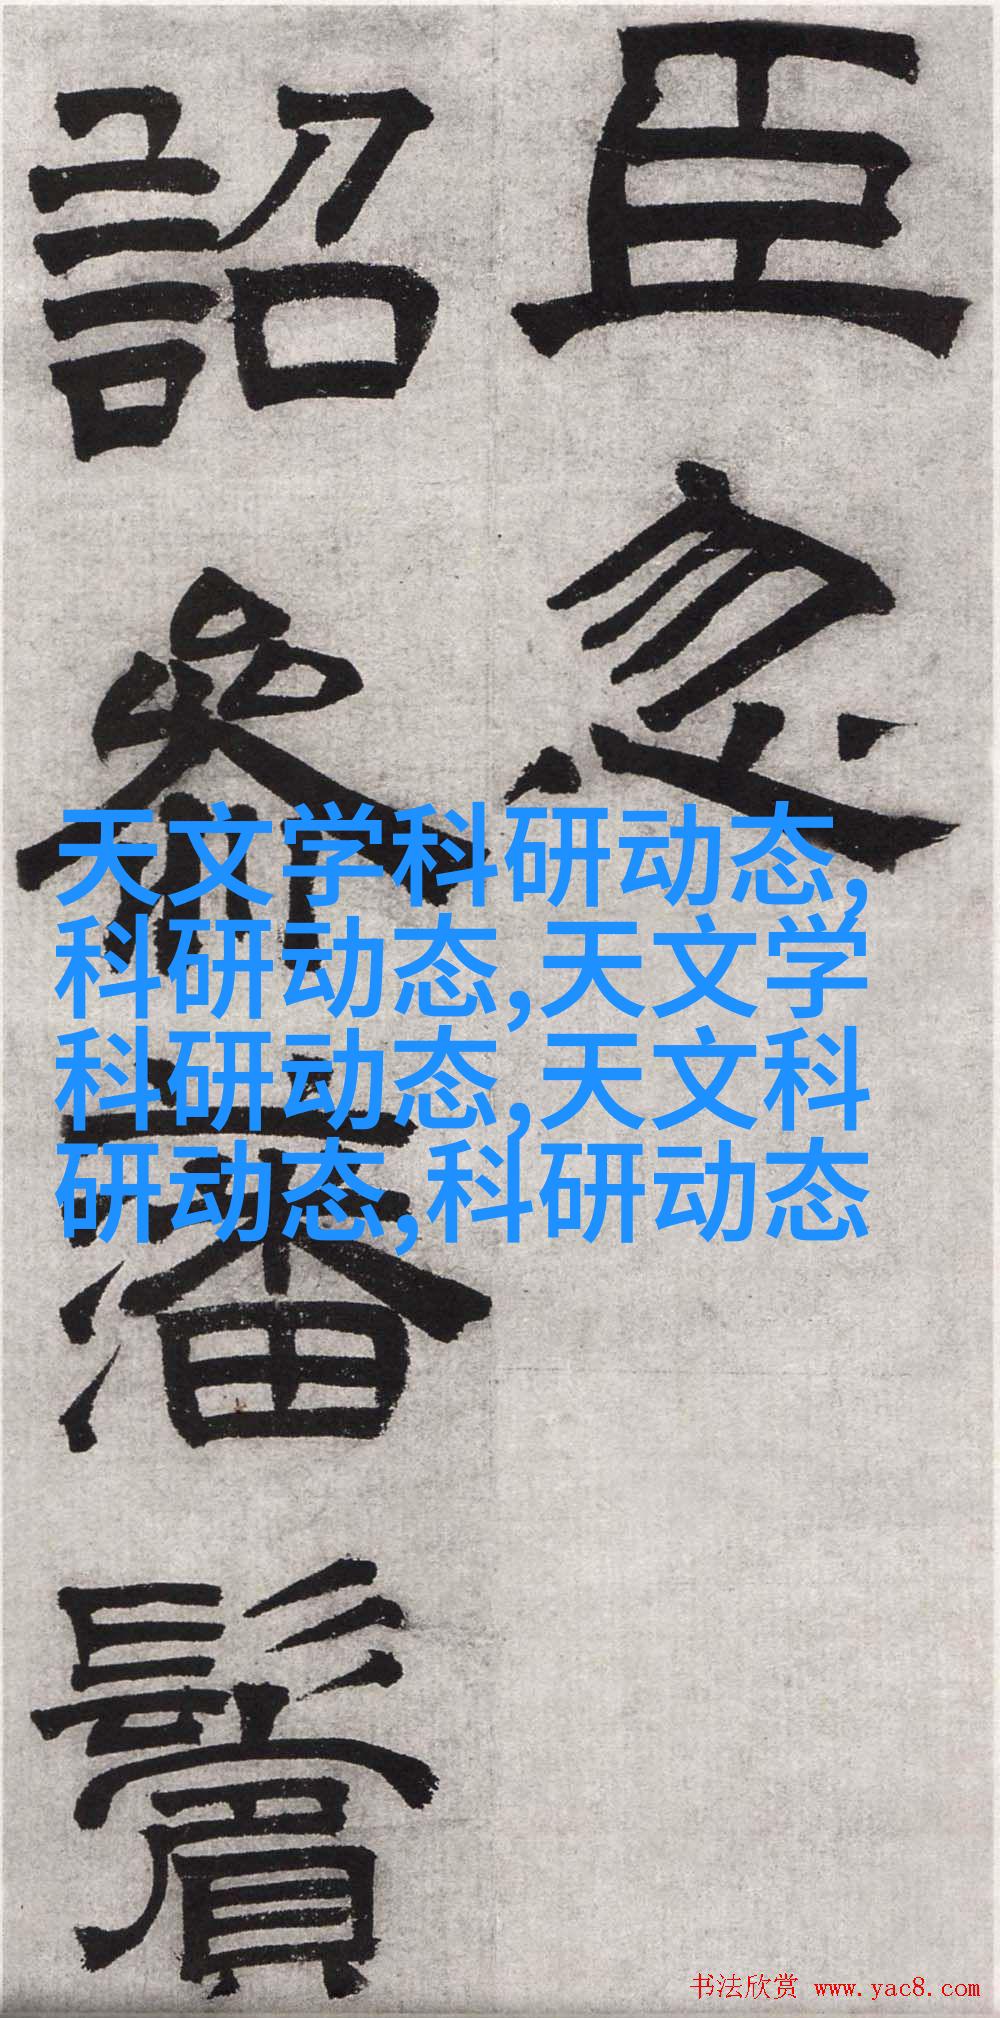 臣忽
詔參
鬢
天文学科研动态,
科研动态,天文学
科研动态,天文科
研动态,科研动态
书法欣赏 www.yac8.com